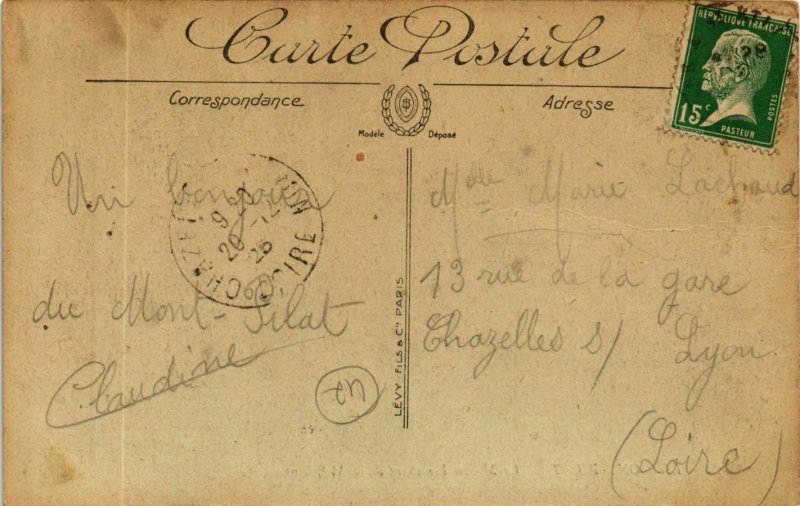 Carte Postale
Correspondance
Adresse
Modèle Déposé
REPUBLIQUE FRANÇAISE
15c
POSTES
PASTEUR
Un bonjour
du Mont-Pilat
Claudine
LOIRE
LÉVY FILS & Cie PARIS
Mdlle Marie Lachaud
13 rue de la gare
Chazelles s/ Lyon
(Loire)